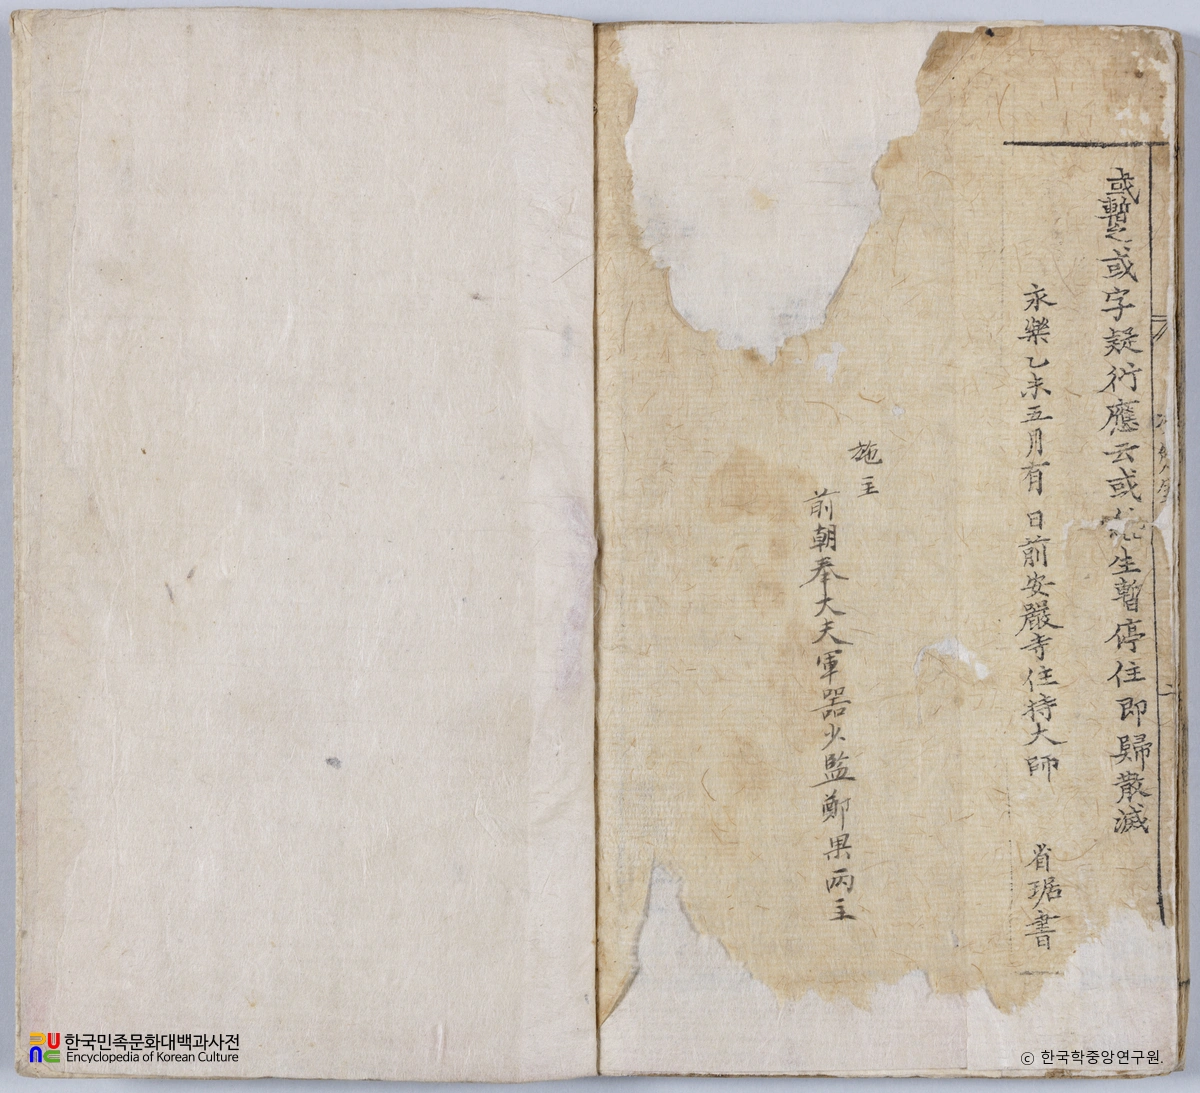 或暫之或字疑衍應云或 生暫停住即歸散滅
永樂乙未五月有日前安嚴寺住持大師 省琚書
施主
前朝奉大夫軍器少監鄭果兩主
한국민족문화대백과사전
Encyclopedia of Korean Culture
© 한국학중앙연구원.